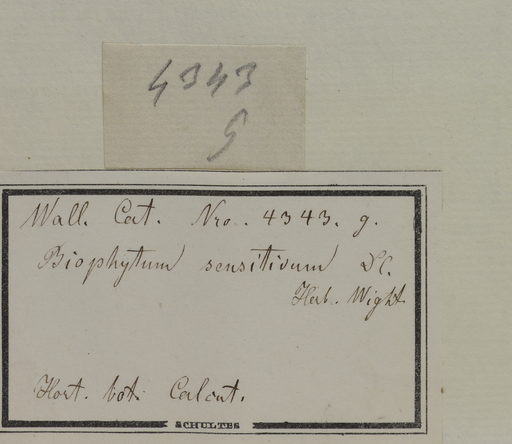 4343
g
Wall. Cat. Nro. 4343. g.
Biophytum sensitivum DC.
Herb. Wight
Hort. bot. Calcut.
SCHULTES